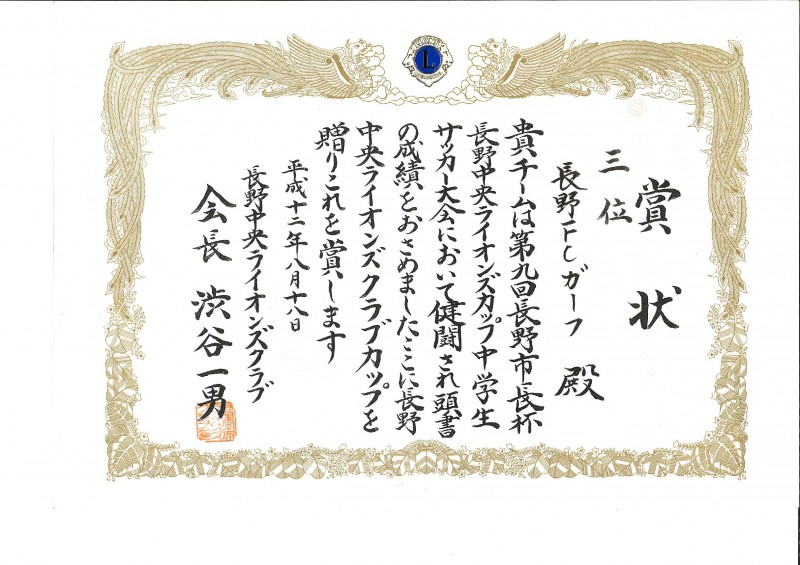 賞状
三位
長野FCガーフ 殿
貴チームは第九回長野市長杯
長野中央ライオンズカップ中学生
サッカー大会において健闘され頭書
の成績をおさめましたここに長野
中央ライオンズクラブカップを
贈りこれを賞します
平成十二年八月十八日
長野中央ライオンズクラブ
会長 渋谷一男
L